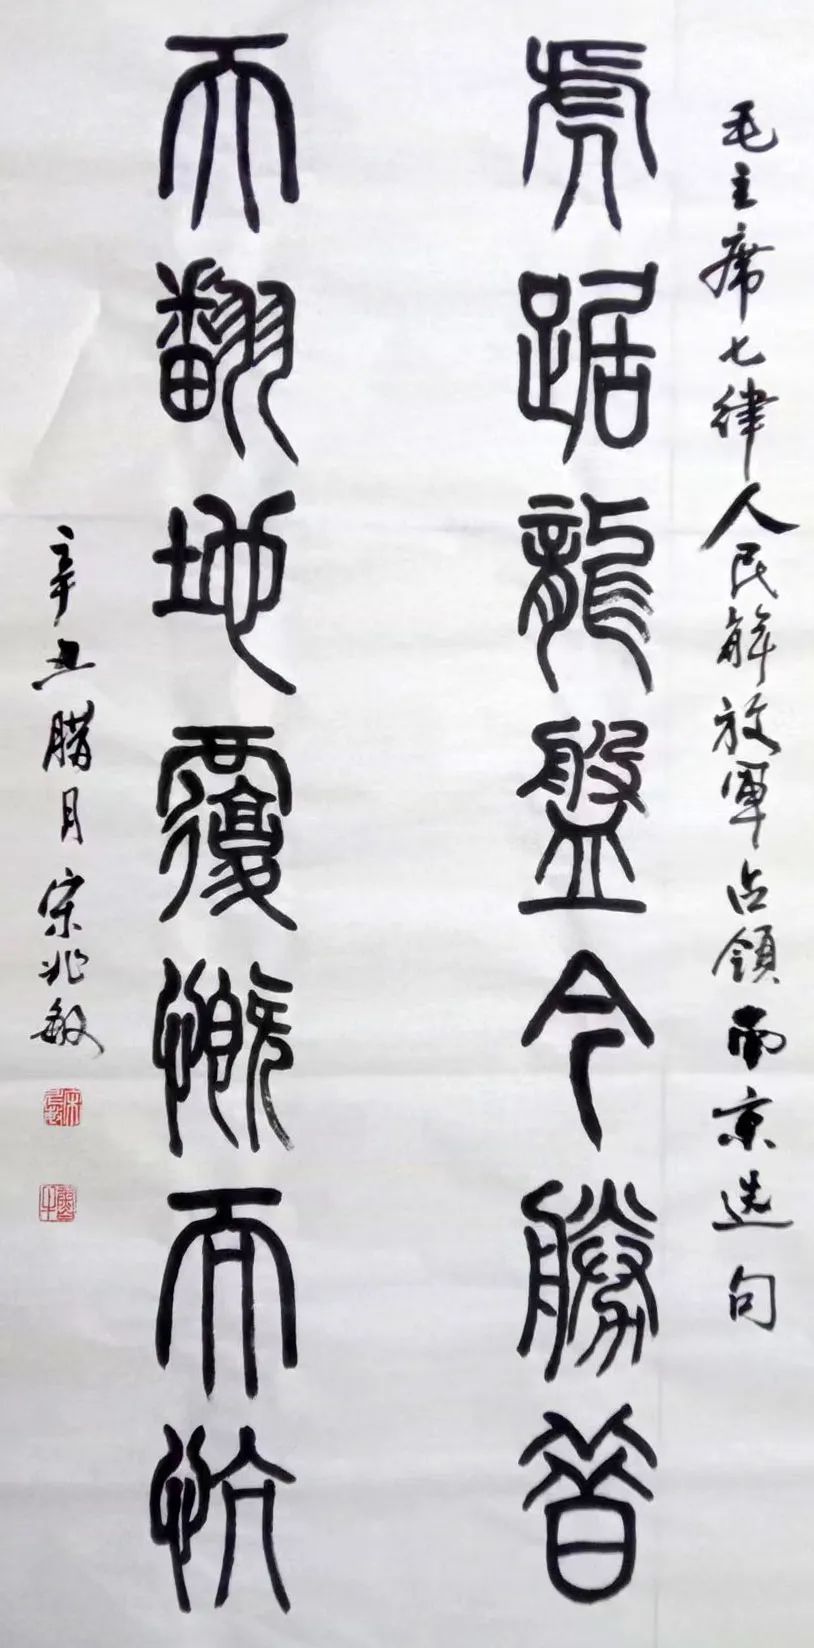 毛主席七律人民解放軍占領南京选句
虎踞龍盤今勝昔
天翻地覆慨而忼
辛丑腊月宋兆敏